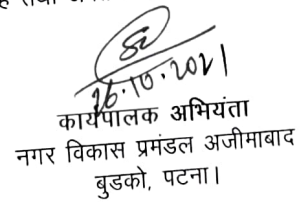 26.10.2021
कार्यपालक अभियंता
नगर विकास प्रमंडल अजीमाबाद
बुडको, पटना।